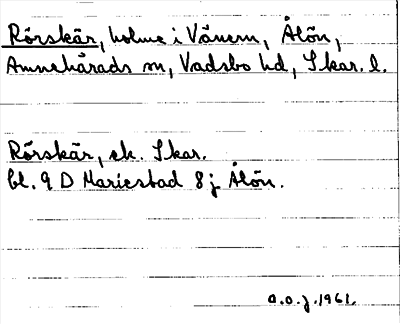 Rörskär, holme i Vänern, Ålön,
Amnehärads sn, Vadsbo hd, Skar. l.
Rörskär, ek. Skar.
bl. 9 D Mariestad 8 j Ålön.
a.o.j. 1961.